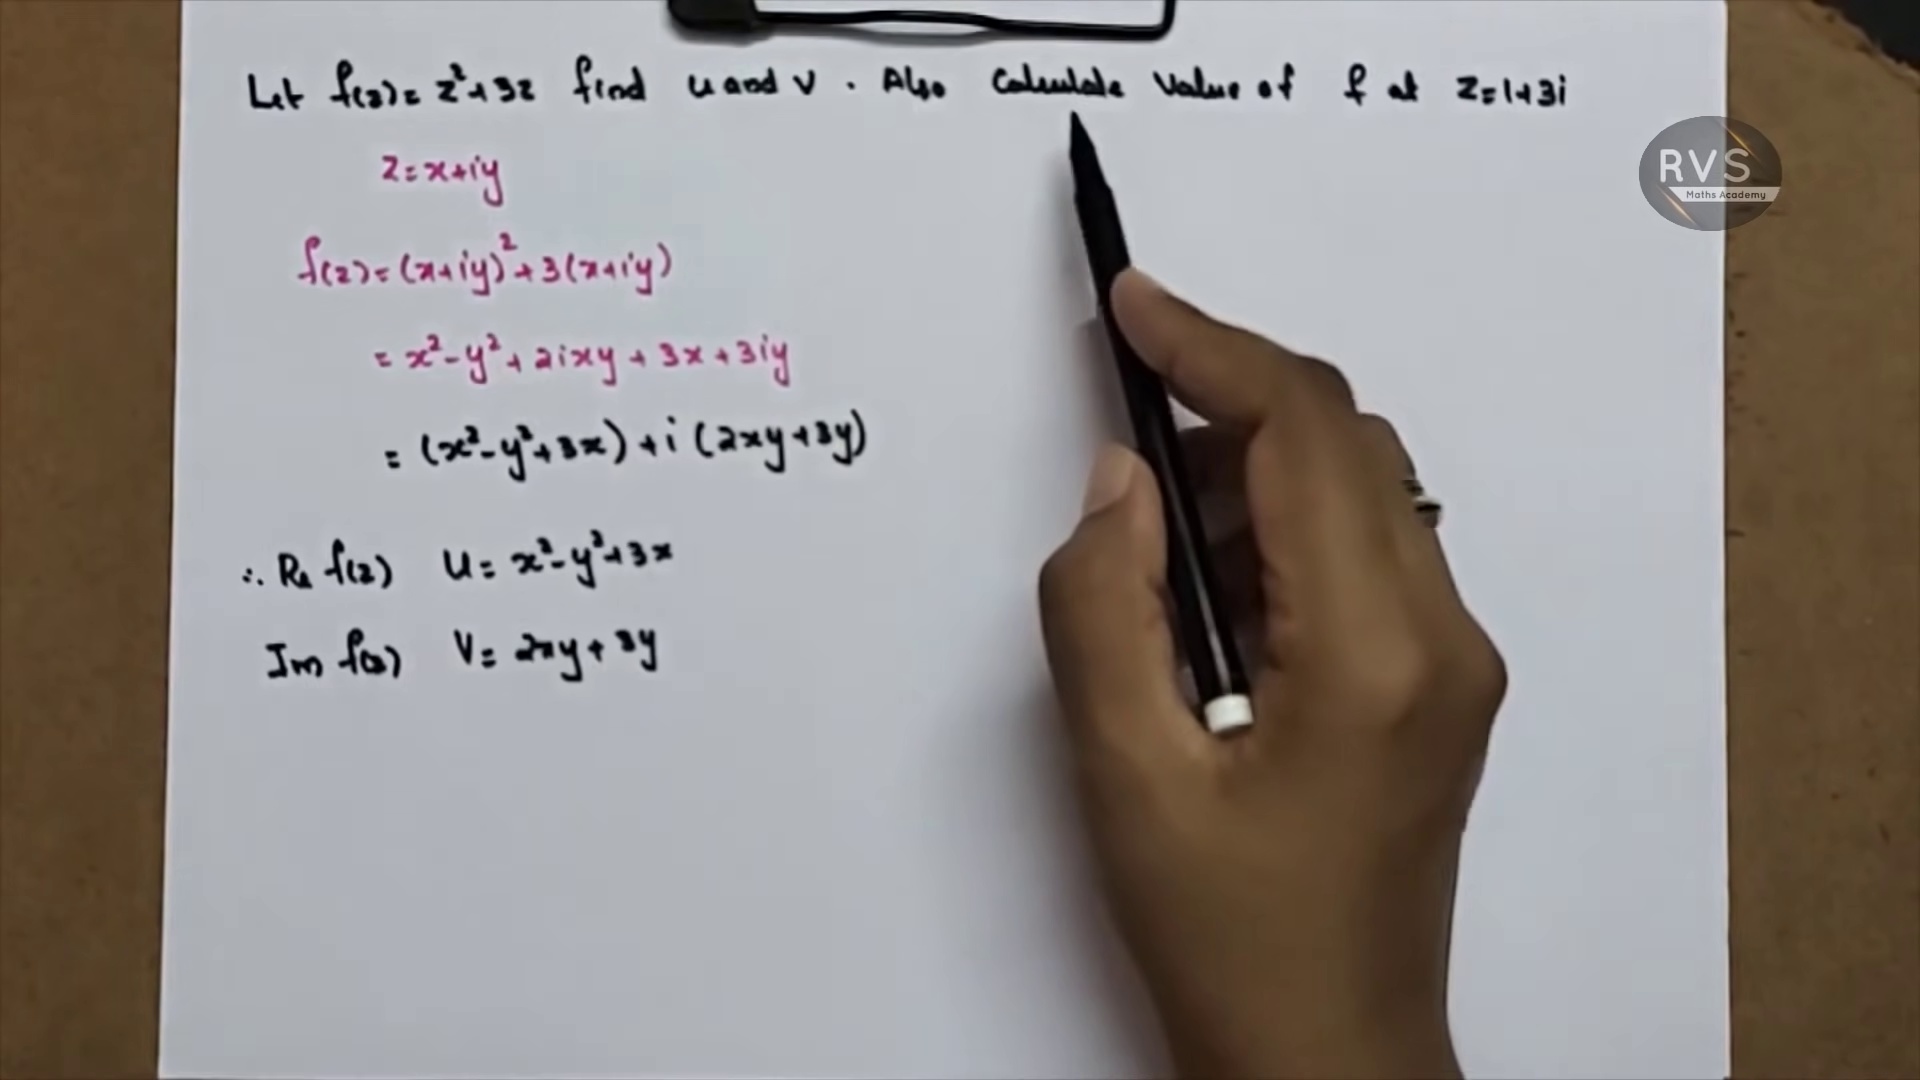 Let f(z) = z²+3z find u and v . Also Calculate Value of f at z=1+3i
RVS
Maths Academy
z=x+iy
f(z)=(x+iy)²+3(x+iy)
= x²-y²+2ixy+3x+3iy
= (x²-y²+3x)+i(2xy+3y)
∴ Re f(z) u= x²-y²+3x
Im f(z) v= 2xy+3y